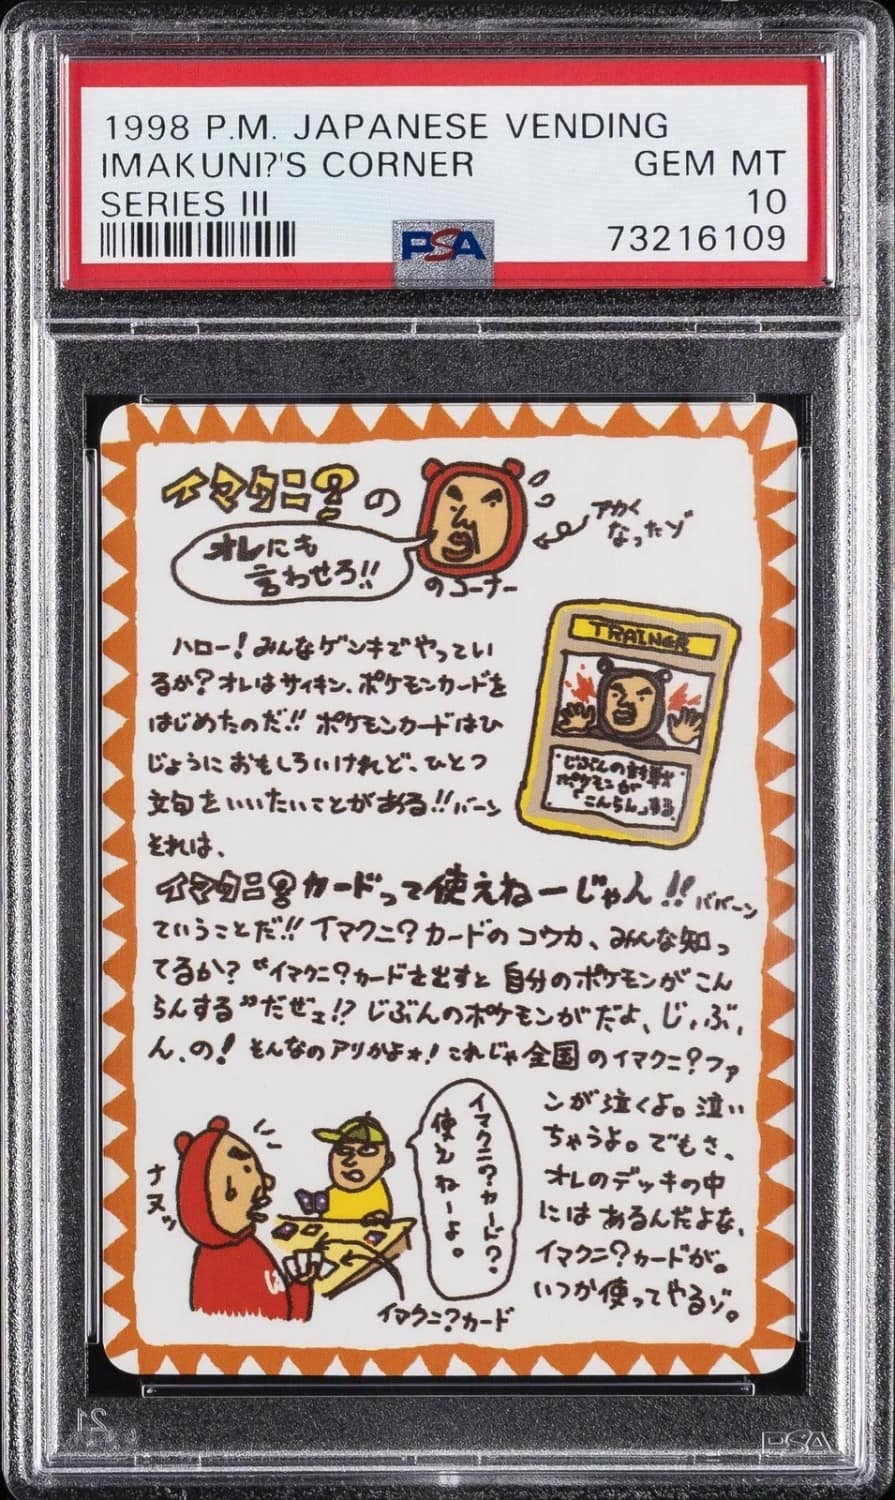 1998 P.M. JAPANESE VENDING
IMAKUNI?'S CORNER GEM MT
SERIES III 10
PSA 73216109
イマクニ?の
オレにも
言わせろ!!
のコーナー
アカく
なったゾ
TRAINER
じぶんの対戦
ポケモンが
「こんらん」する
ハロー!みんなゲンキでやってい
るか?オレはサイキン、ポケモンカードを
はじめたのだ!!ポケモンカードはひ
じょうにおもしろいけれど、ひとつ
文句をいいたいことがある!!バーン
それは、
イマクニ?カードって使えねーじゃん!!ババーン
ていうことだ!!イマクニ?カードのコウカ、みんな知っ
てるか?“イマクニ?カードを出すと自分のポケモンがこん
らんする”だぜェ!?じぶんのポケモンがだよ、じ、ぶ、
ん、の!そんなのアリかよォ!これじゃ全国のイマクニ?ファ
ンが泣くよ。泣い
ちゃうよ。でもさ、
オレのデッキの中
にはあるんだよな、
イマクニ?カードが。
いつか使ってやるゾ。
ナヌッ
イマクニ?カード?
使えねーよ。
イマクニ?カード
PSA